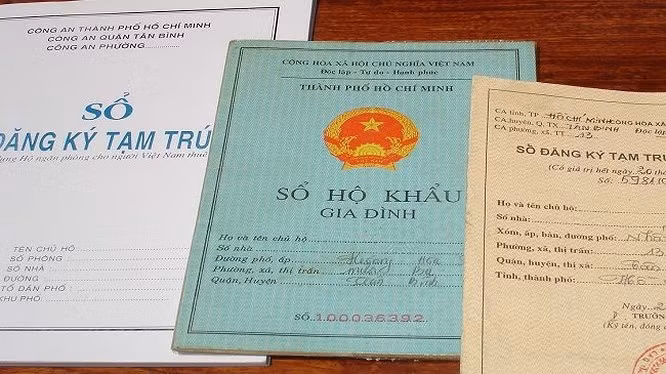 CÔNG AN THÀNH PHỐ HỒ CHÍ MINH
CÔNG AN QUẬN TÂN BÌNH
CÔNG AN PHƯỜNG:
SỔ
ĐĂNG KÝ TẠM TRÚ
Hộ ngăn phòng cho người Việt Nam thuê
TÊN CHỦ HỘ
SỐ PHÒNG
SỐ NHÀ
ĐƯỜNG
TỔ DÂN PHỐ
KHU PHỐ
CỘNG HÒA XÃ HỘI CHỦ NGHĨA VIỆT NAM
Độc lập - Tự do - Hạnh phúc
THÀNH PHỐ HỒ CHÍ MINH
VIỆT NAM
SỔ HỘ KHẨU
GIA ĐÌNH
Họ và tên chủ hộ
Số nhà
Đường phố, ấp Hoa
Phường, xã, thị trấn
Quận, Huyện Tân Bình
SỐ: 100036392
CA tỉnh, TP HỒ CHÍ MINH CỘNG HÒA XÃ
CA.huyện, Q, TX TÂN BÌNH Độc lập
CA phường, xã, TT 13
SỔ ĐĂNG KÝ TẠM TRÚ
(Có giá trị hết ngày 20 thá
Số: 5981
Họ và tên chủ hộ:
Số nhà:
Xóm, ấp, bản, đường phố:
Phường, xã, thị trấn: 13
Quận, huyện, thị xã: Tân
Tỉnh, thành phố: Hồ
Ngày 2
TRƯỞN
(Ký tên, đóng